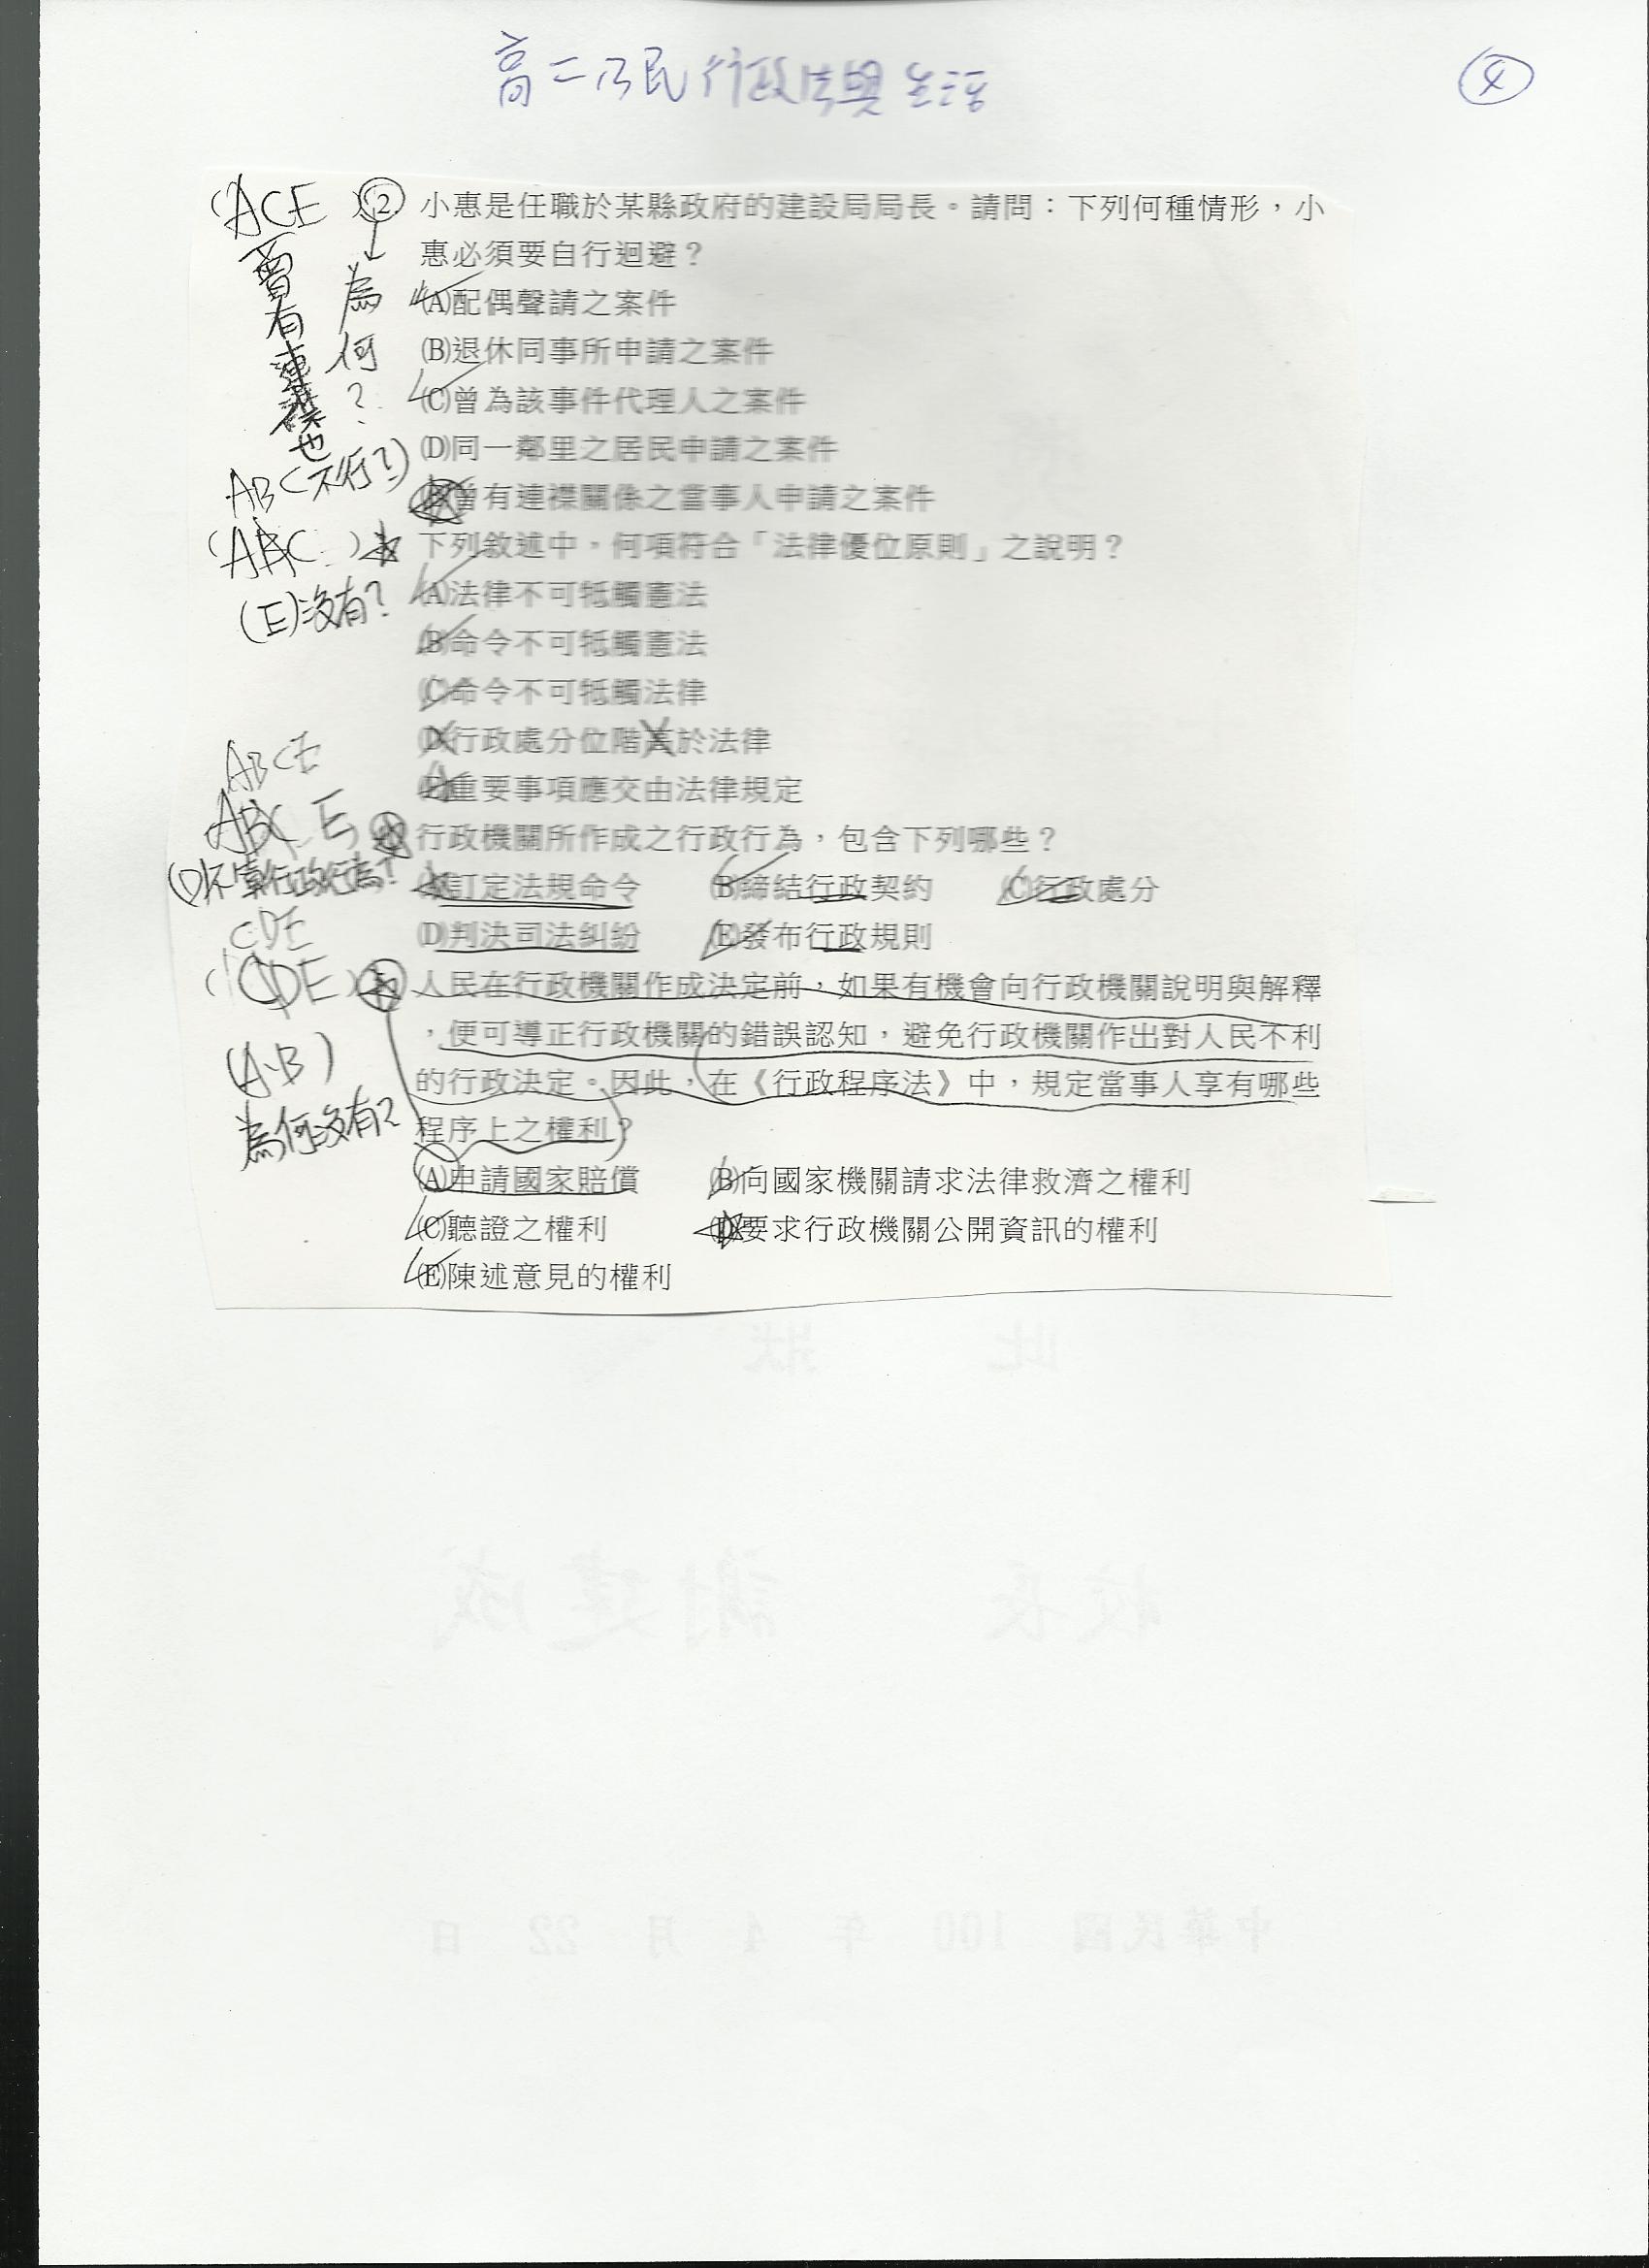 高二公民行政法與生活
4
(ACE ) 2. 小惠是任職於某縣政府的建設局局長。請問：下列何種情形，小
惠必須要自行迴避？
(A)配偶聲請之案件
(B)退休同事所申請之案件
(C)曾為該事件代理人之案件
(D)同一鄰里之居民申請之案件
(E)曾有連襟關係之當事人申請之案件
為何？
曾有連襟也
ABC(不行？)
(ABC ) 下列敘述中，何項符合「法律優位原則」之說明？
(E)沒有？
(A)法律不可牴觸憲法
(B)命令不可牴觸憲法
(C)命令不可牴觸法律
(D)行政處分位階高於法律
(E)重要事項應交由法律規定
ABCE
ABC E 行政機關所作成之行政行為，包含下列哪些？
(D)不算行政行為？
(A)訂定法規命令 (B)締結行政契約 (C)行政處分
(D)判決司法糾紛 (E)發布行政規則
CDE
(CDE ) 人民在行政機關作成決定前，如果有機會向行政機關說明與解釋
，便可導正行政機關的錯誤認知，避免行政機關作出對人民不利
的行政決定。因此，在《行政程序法》中，規定當事人享有哪些
程序上之權利？
(A、B)
為何沒有？
(A)申請國家賠償 (B)向國家機關請求法律救濟之權利
(C)聽證之權利 (D)要求行政機關公開資訊的權利
(E)陳述意見的權利
此狀
校長 謝建成
中華民國 100 年 4 月 22 日